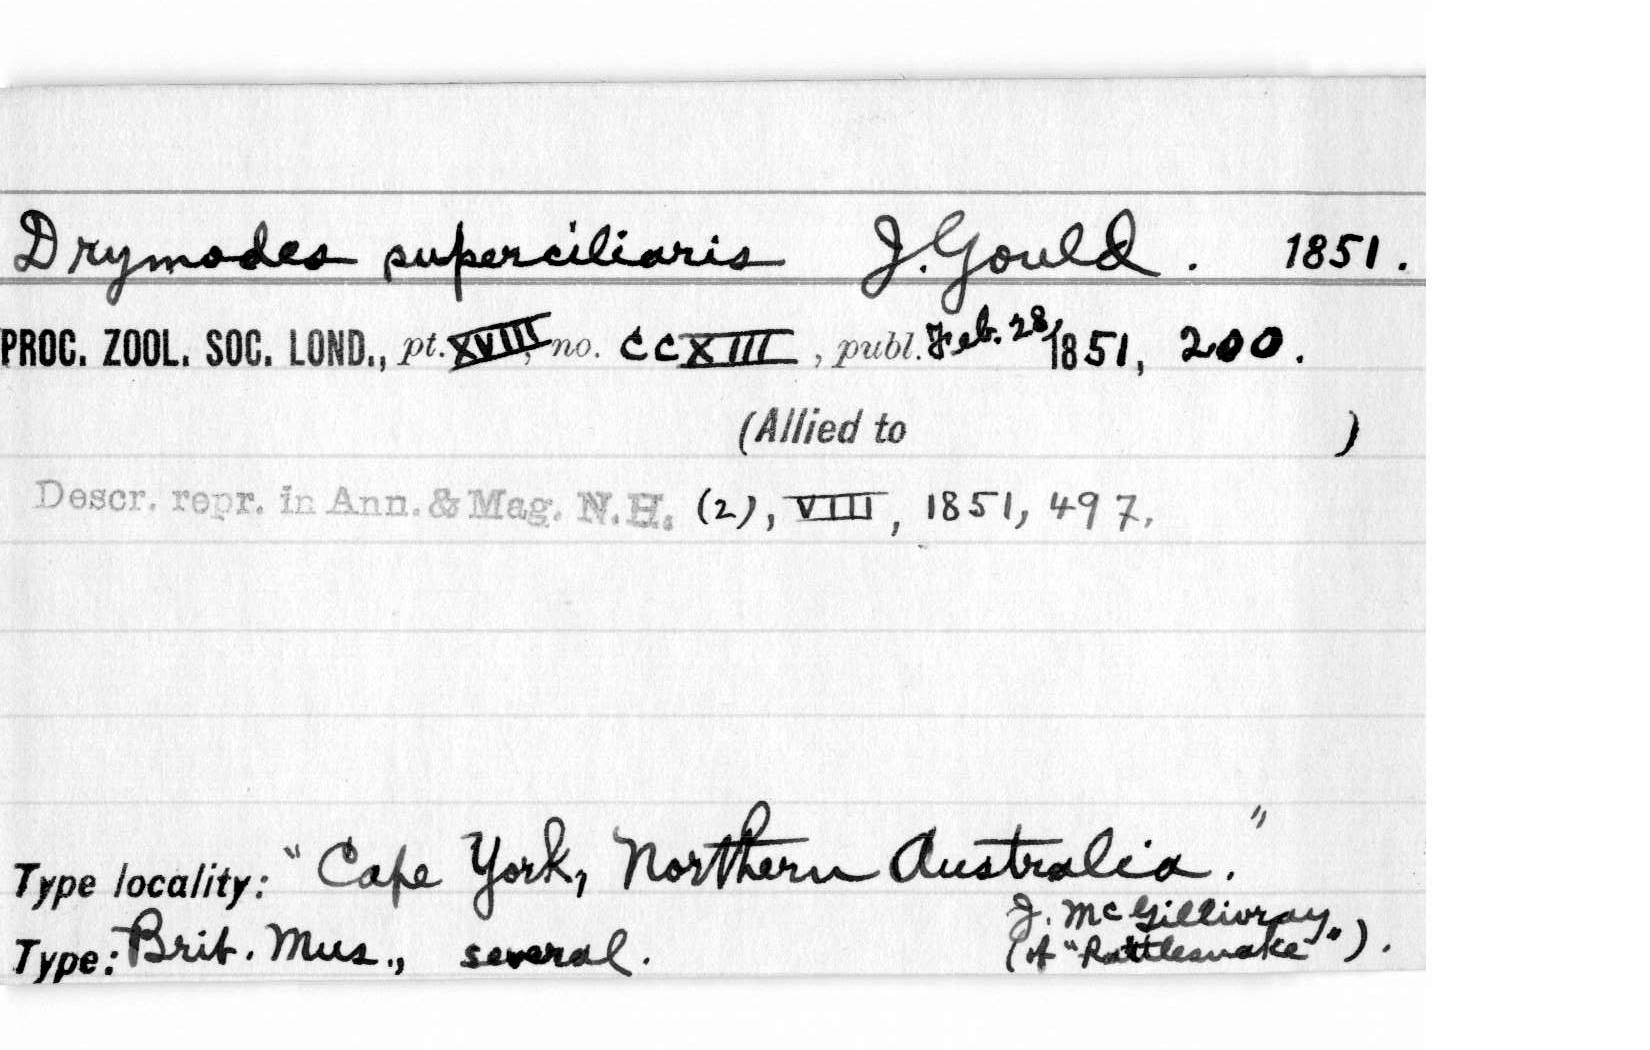 Drymodes superciliaris J. Gould. 1851.
PROC. ZOOL. SOC. LOND., pt. XVIII, no. CCXIII, publ. Feb. 28/1851, 200.
(Allied to )
Descr. repr. in Ann. & Mag. N.H. (2), VIII, 1851, 497.
Type locality: "Cape York, Northern Australia."
J. McGillivray
Type: Brit. Mus., several. (of "Rattlesnake").